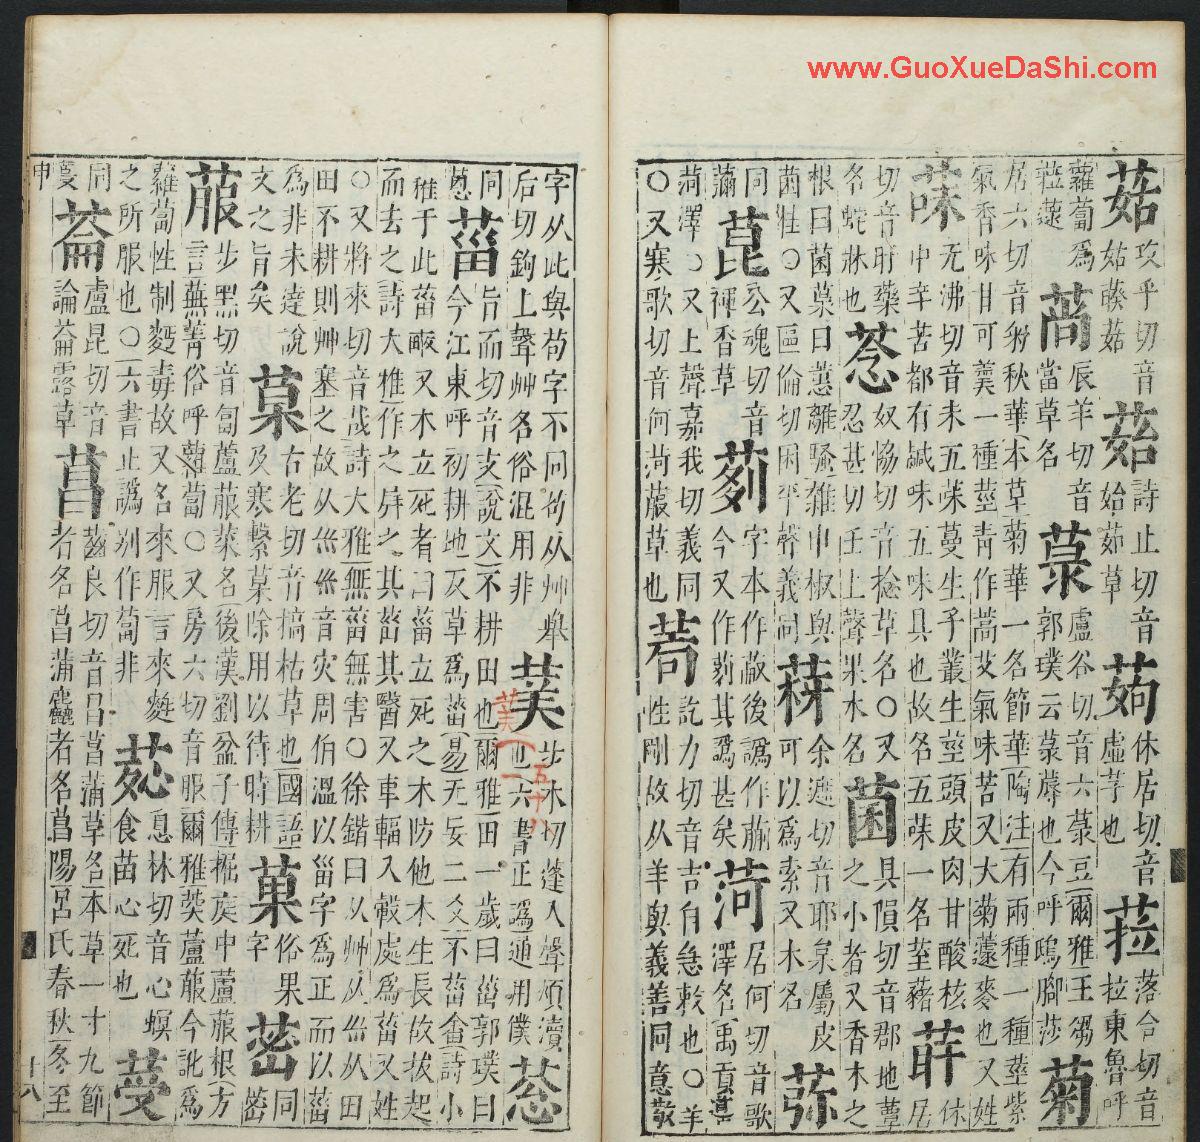 www.GuoXueDaShi.com
菇攻乎切音姑藤菇 䓃詩止切音始茹草 䒱休居切音虛芋也 菈落合切音拉東魯呼
蘿蔔爲菈蓫 𦯝辰羊切音當草名 菉盧谷切音六菉豆爾雅王芻郭璞云菉蓐也今呼鴟腳莎 菊
居六切音掬秋華本草菊華一名節華陶注有兩種一種莖紫
氣香味甘可羹一種莖青作蒿艾氣味苦又大菊蘧麥也又姓
菋无沸切音未五菋蔓生子叢生莖頭皮肉甘酸核中辛苦都有鹹味五味具也故名五菋一名荎藸 䓈居
切音旰藥名蛇牀也 菍奴協切音捻草名〇又忍甚切壬上聲果木名 菌具隕切音郡地蕈之小者又香木之
根曰菌菓曰蕙離騷雜申椒與菌桂〇又區倫切囷平聲義同 䓉余遮切音耶枲屬皮可以爲索又木名 菾
同䕯 菎公魂切音褌香草 䓶字本作蔽後譌作萷今又作䓶其譌甚矣 菏居何切音歌澤名禹貢導
菏澤〇又上聲嘉我切義同〇又寒歌切音何菏菔草也 苟訖力切音吉自急敕也〇羊性剛故从羊與義善同意敬
字从此與苟字不同苟从艸舉后切鉤上聲艸名俗混用非 菐步木切蓬入聲煩瀆也六書正譌通用僕 菑
同旨而切音支說文不耕田也爾雅田一歲曰菑郭璞曰今江東呼初耕地反草爲菑易无妄二爻不菑畬詩小
雅于此菑畝又木立死者曰菑立死之木防他木生長故拔起
而去之詩大雅作之屏之其菑其翳又車輻入轂處爲菑又姓
〇又將來切音哉詩大雅無菑無害〇徐鍇曰从艸从巛从田
田不耕則艸塞之故从巛巛音灾周伯溫以甾字爲正而以菑
爲非未達說文之旨矣 䓍古老切音槁枯草也國語及寒繫䓍除用以待時耕 菓俗果字 䓔同密
菔步黑切音匐蘆菔菜名後漢劉盆子傳掘庭中蘆菔根方言蕪菁俗呼蘿蔔〇又房六切音服爾雅葖蘆菔今訛爲
蘿蔔性制麪毒故又名來服言來麰之所服也〇六書止譌别作蔔非 䓄息林切音心螟食苗心死也
同 菕盧昆切音論菕露草 菖齒良切音昌菖蒲草名本草一寸九節者名菖蒲麤者名菖陽呂氏春秋冬至
申
十八
菐一
五十八